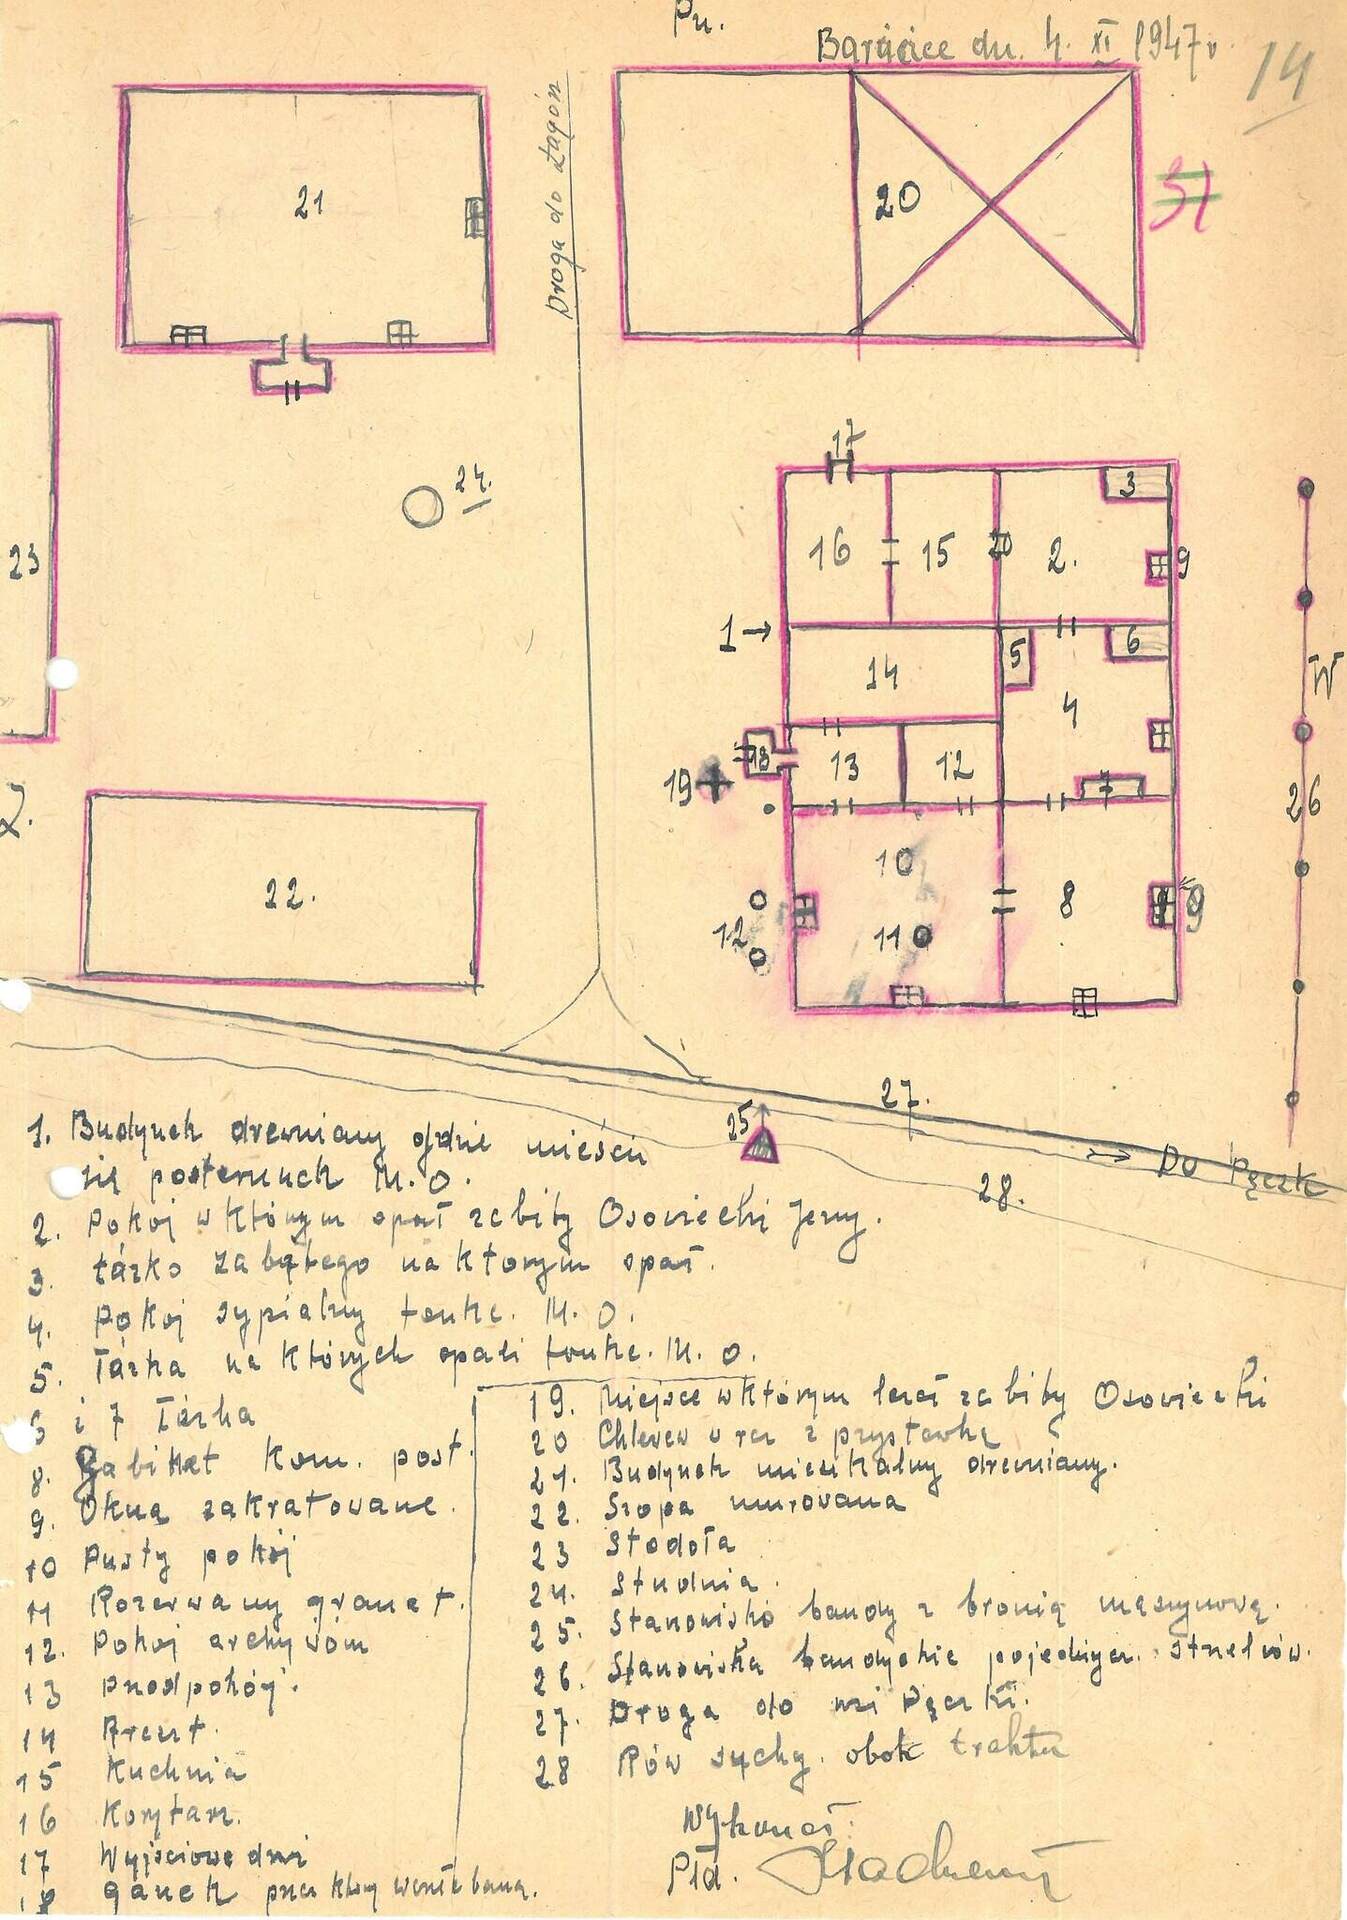 Pn.
dn. 4. XI 1947 r.
14
37
Droga do
21
20
23
24.
17
3
16
15
20
2.
9
1 →
14
5
6
4
W
18
13
12
7
19
26
Z.
22.
10
8
9
12
11
27.
25
28.
→ Do Pęczk
1. Budynek drewniany gdzie mieści
się posterunek M.O.
2. Pokój w którym spał zabity Osowiecki Jerzy.
3. Łózko zabitego naktorym spał.
4. Pokoj sypialny funkc. M.O.
5. Łózka na których spali funkc. M.O.
6 i 7 Łózka
8. Gabinet Kom. post.
9. Okna zakratowane.
10 Pusty pokój
11 Rozerwany granat.
12. Pokoj archywom
13 przedpokój.
14 Areszt.
15 Kuchnia
16 Korytarz.
17 Wyjsciowe drzwi
18 ganek przez który
19. Miejsce wktórym leżał zabity Osowiecki
20 Chlewew wraz z przystawką
21. Budynek mieszkalny drewniany.
22. Szopa murowana
23 Stodoła
24. Studnia.
25. Stanowisko bandy z bronią maszynową.
26. Stanowiska bandyckie pojedńczn. strzelców.
27. Droga do wsi Pęczki.
28 Rów suchy obok traktu
Wykonał: